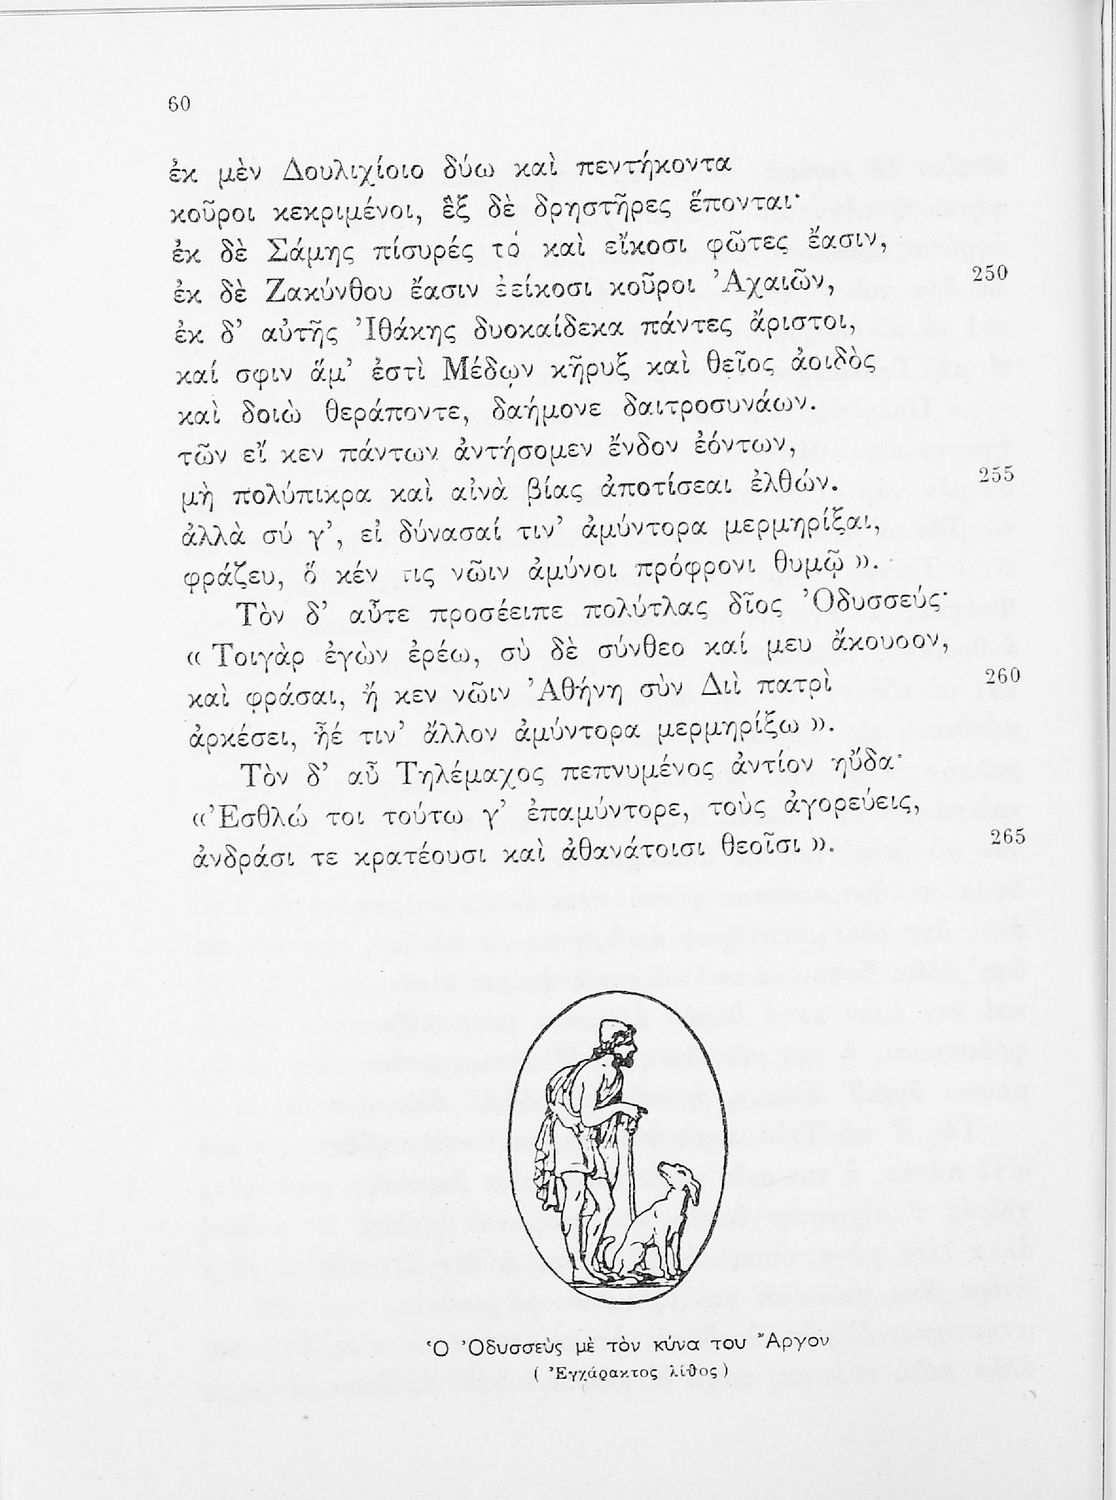 60
ἐκ μὲν Δουλιχίοιο δύω καὶ πεντήκοντα
κοῦροι κεκριμένοι, ἓξ δὲ δρηστῆρες ἕπονται·
ἐκ δὲ Σάμης πίσυρές τὀ καὶ εἴκοσι φῶτες ἔασιν,
ἐκ δὲ Ζακύνθου ἔασιν ἐείκοσι κοῦροι Ἀχαιῶν, 250
ἐκ δ’ αὐτῆς Ἰθάκης δυοκαίδεκα πάντες ἄριστοι,
καί σφιν ἅμ’ ἐστὶ Μέδων κῆρυξ καὶ θεῖος ἀοιδὸς
καὶ δοιὼ θεράποντε, δαήμονε δαιτροσυνάων.
τῶν εἴ κεν πάντων ἀντήσομεν ἔνδον ἐόντων,
μὴ πολύπικρα καὶ αἰνὰ βίας ἀποτίσεαι ἐλθών. 255
ἀλλὰ σύ γ’, εἰ δύνασαί τιν’ ἀμύντορα μερμηρίξαι,
φράζευ, ὅ κέν τις νῶιν ἀμύνοι πρόφρονι θυμῷ ».
Τὸν δ’ αὖτε προσέειπε πολύτλας δῖος Ὀδυσσεύς·
« Τοιγὰρ ἐγὼν ἐρέω, σὺ δὲ σύνθεο καί μευ ἄκουοον,
καὶ φράσαι, ἤ κεν νῶιν Ἀθήνη σὺν Διὶ πατρὶ 260
ἀρκέσει, ἦέ τιν’ ἄλλον ἀμύντορα μερμηρίξω ».
Τὸν δ’ αὖ Τηλέμαχος πεπνυμένος ἀντίον ηὔδα·
«Ἐσθλώ τοι τούτω γ’ ἐπαμύντορε, τοὺς ἀγορεύεις,
ἀνδράσι τε κρατέουσι καὶ ἀθανάτοισι θεοῖσι ». 265
Ὁ Ὀδυσσεὺς μὲ τὸν κύνα του Ἄργον
( Ἐγχάρακτος λίθος )